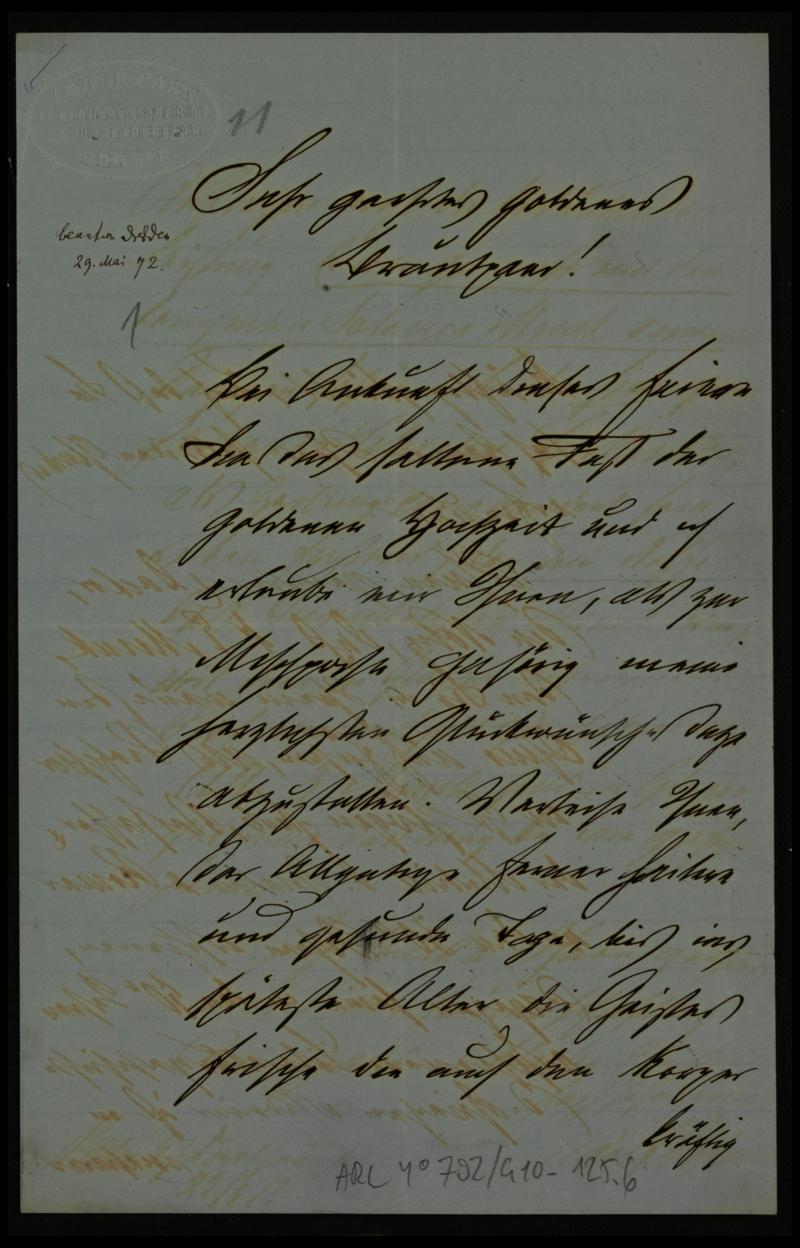 11
Sehr geehrtes goldenes
Brautpaar!
29. Mai 72.
1
Bei Ankunft dieses feiern
Sie das seltene Fest der
goldenen Hochzeit und ich
erlaube mir Ihnen, als zur
Mischpoche gehörig meine
herzlichsten Glückwünsche dazu
abzustatten. Verleihe Ihnen,
der Allgütige ferner heitere
und gesunde Tage, bis ins
späteste Alter die Geistes
frische die auch den Körper
kräftig
ARC 4° 792/G10-125.6